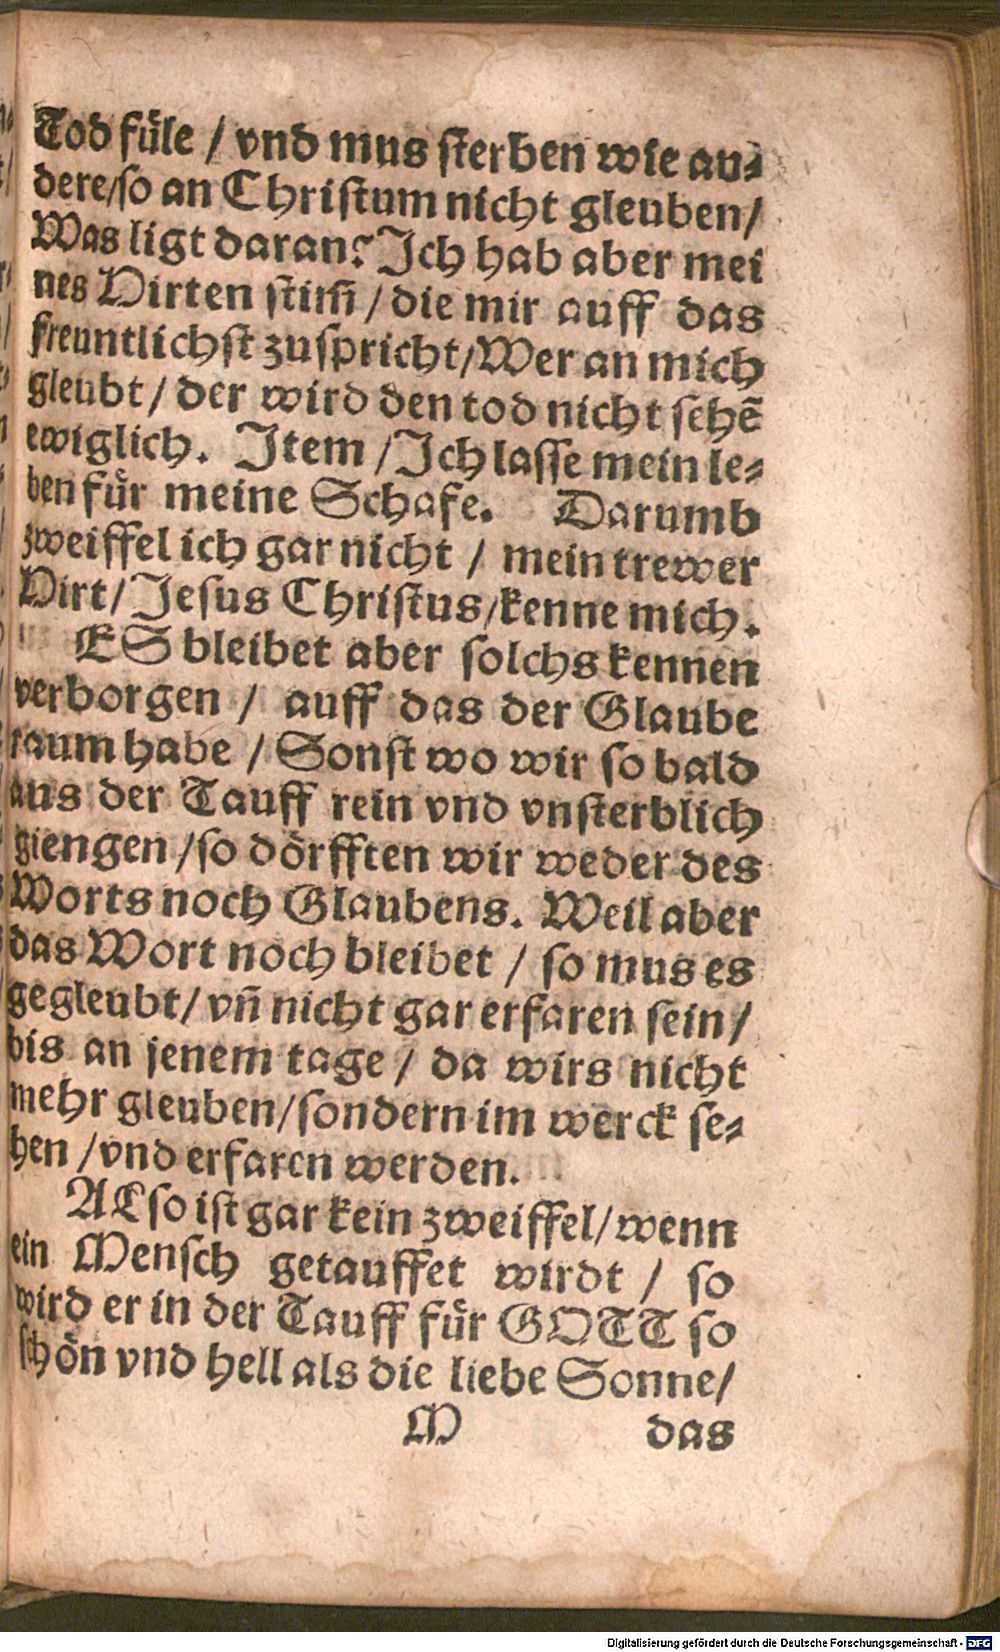 Tod fůle / vnd mus ſterben wie an⸗
dere/ſo an Chriſtum nicht gleuben/
Was ligt daran? Ich hab aber mei
nes Hirten ſtim̃ / die mir auff das
freuntlichſt zuſpricht/Wer an mich
gleubt / der wird den tod nicht ſehẽ
ewiglich. Item / Ich laſſe mein le⸗
ben fůr meine Schafe. Darumb
zweiffel ich gar nicht / mein trewer
Hirt/ Jeſus Chriſtus/kenne mich.
ES bleibet aber ſolchs kennen
verborgen / auff das der Glaube
raum habe / Sonſt wo wir ſo bald
aus der Tauff rein vnd vnſterblich
giengen /ſo dörfften wir weder des
Worts noch Glaubens. Weil aber
das Wort noch bleibet / ſo mus es
gegleubt/ vñ nicht gar erfaren ſein/
bis an jenem tage / da wirs nicht
mehr gleuben/ſondern im werck ſe⸗
hen /vnd erfaren werden.
ALſo iſt gar kein zweiffel/wenn
ein Menſch getauffet wirdt / ſo
wird er in der Tauff fůr GOTT ſo
ſchön vnd hell als die liebe Sonne/
M das
Digitalisierung gefördert durch die Deutsche Forschungsgemeinschaft - DFG